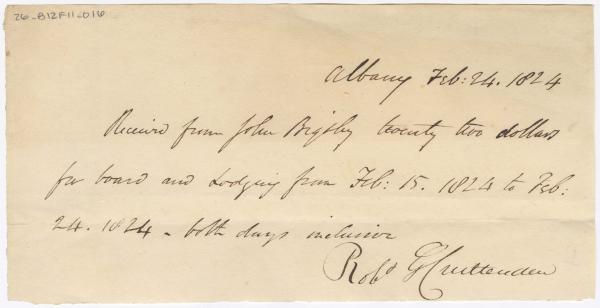 26-B12F11-016
Albany Feb: 24. 1824
Received from John Bigsby twenty two dollars
for board and Lodging from Feb: 15. 1824 to Feb:
24. 1824 - both days inclusive
Robt G Cruttenden